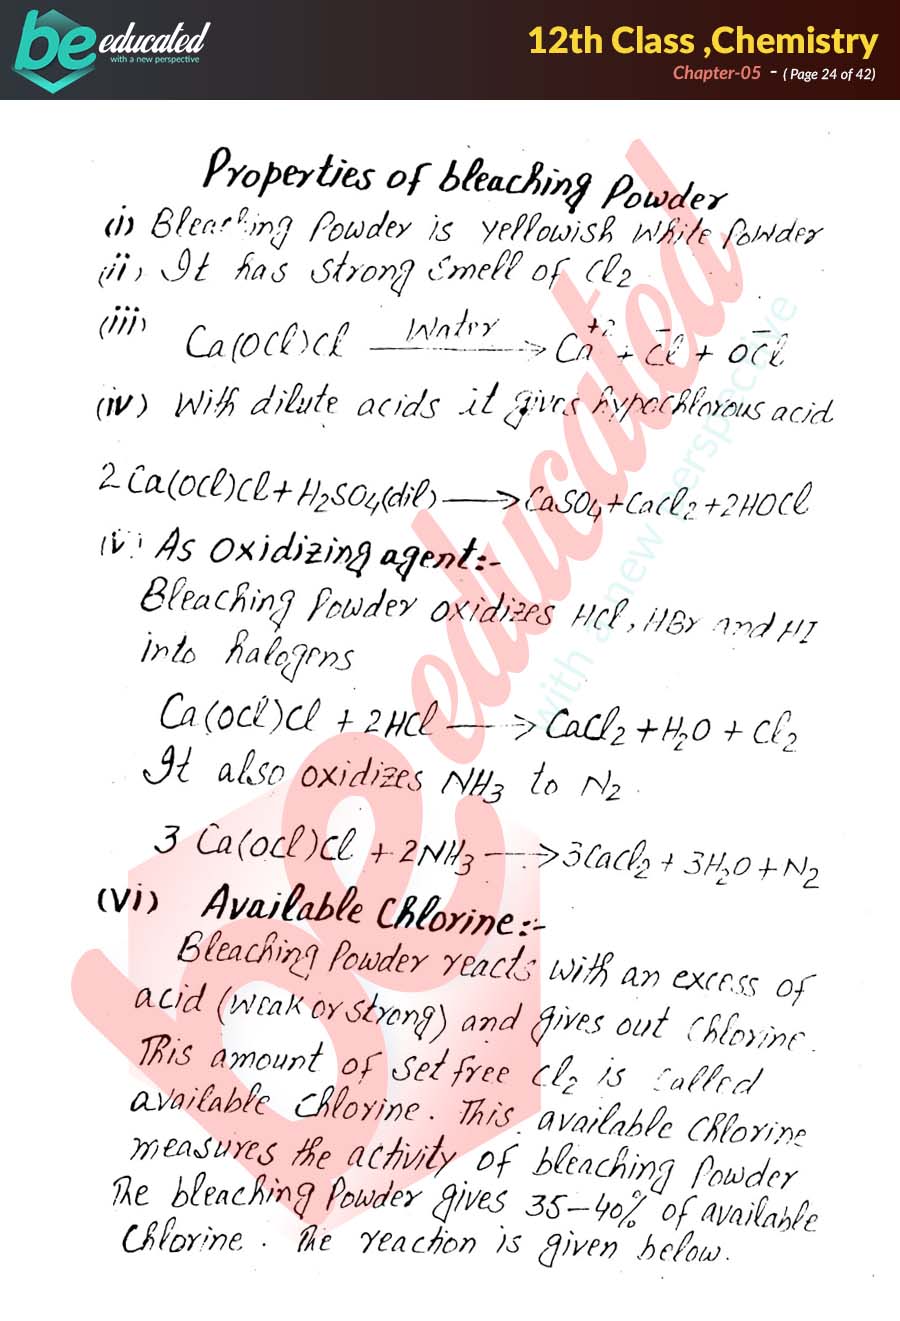 be educated
with a new perspective
12th Class ,Chemistry
Chapter-05 - ( Page 24 of 42)
Properties of bleaching Powder
(i) Bleaching Powder is yellowish white Powder
(ii) It has strong smell of Cl2
(iii) Ca(OCl)Cl —Water→ Ca+2 + Cl- + OCl-
(iv) With dilute acids it gives hypochlorous acid
2Ca(OCl)Cl + H2SO4(dil) → CaSO4 + CaCl2 + 2HOCl
(v) As Oxidizing agent:-
Bleaching Powder oxidizes HCl, HBr and HI
into halogens
Ca(OCl)Cl + 2HCl → CaCl2 + H2O + Cl2
It also oxidizes NH3 to N2.
3 Ca(OCl)Cl + 2NH3 → 3CaCl2 + 3H2O + N2
(vi) Available Chlorine:-
Bleaching Powder reacts with an excess of
acid (weak or strong) and gives out Chlorine.
This amount of set free Cl2 is called
available Chlorine. This available Chlorine
measures the activity of bleaching Powder
The bleaching Powder gives 35-40% of available
Chlorine. The reaction is given below.
be educated
with a new perspective